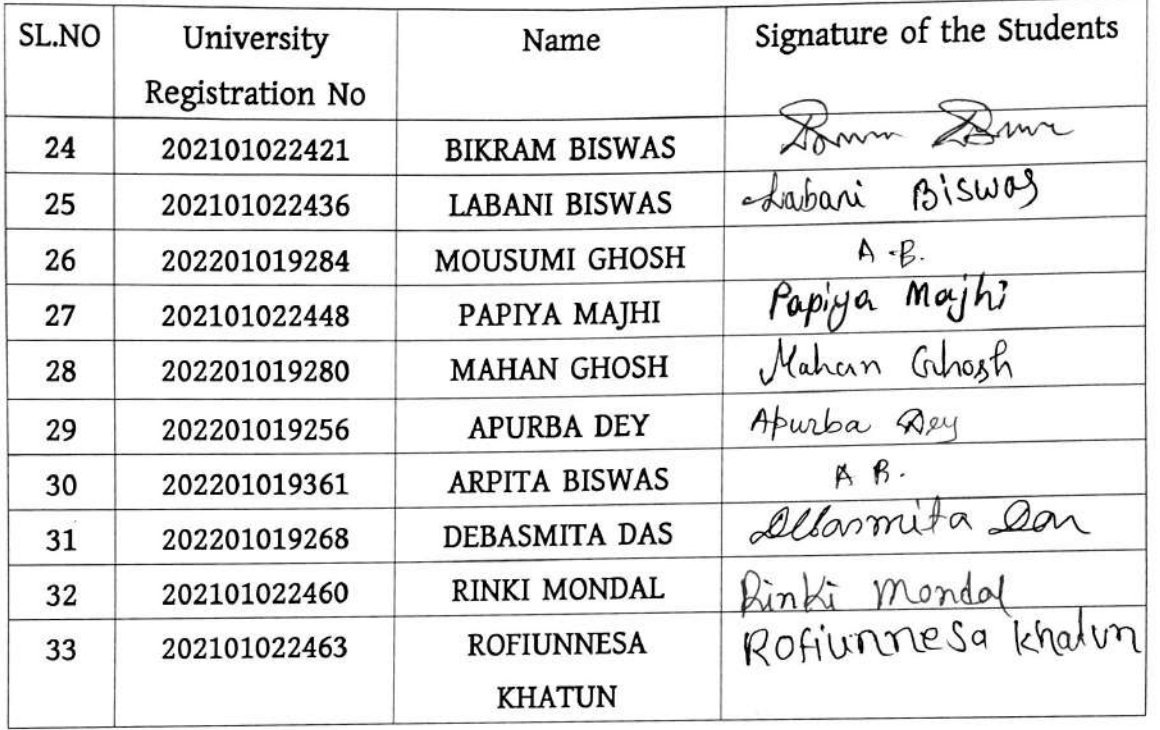 SL.NO University Registration No Name Signature of the Students
24 202101022421 BIKRAM BISWAS
25 202101022436 LABANI BISWAS Labani Biswas
26 202201019284 MOUSUMI GHOSH A.B.
27 202101022448 PAPIYA MAJHI Papiya Majhi
28 202201019280 MAHAN GHOSH Mahan Ghosh
29 202201019256 APURBA DEY Apurba Dey
30 202201019361 ARPITA BISWAS A B.
31 202201019268 DEBASMITA DAS Debasmita Das
32 202101022460 RINKI MONDAL Rinki Mondal
33 202101022463 ROFIUNNESA KHATUN Rofiunnesa Khatun